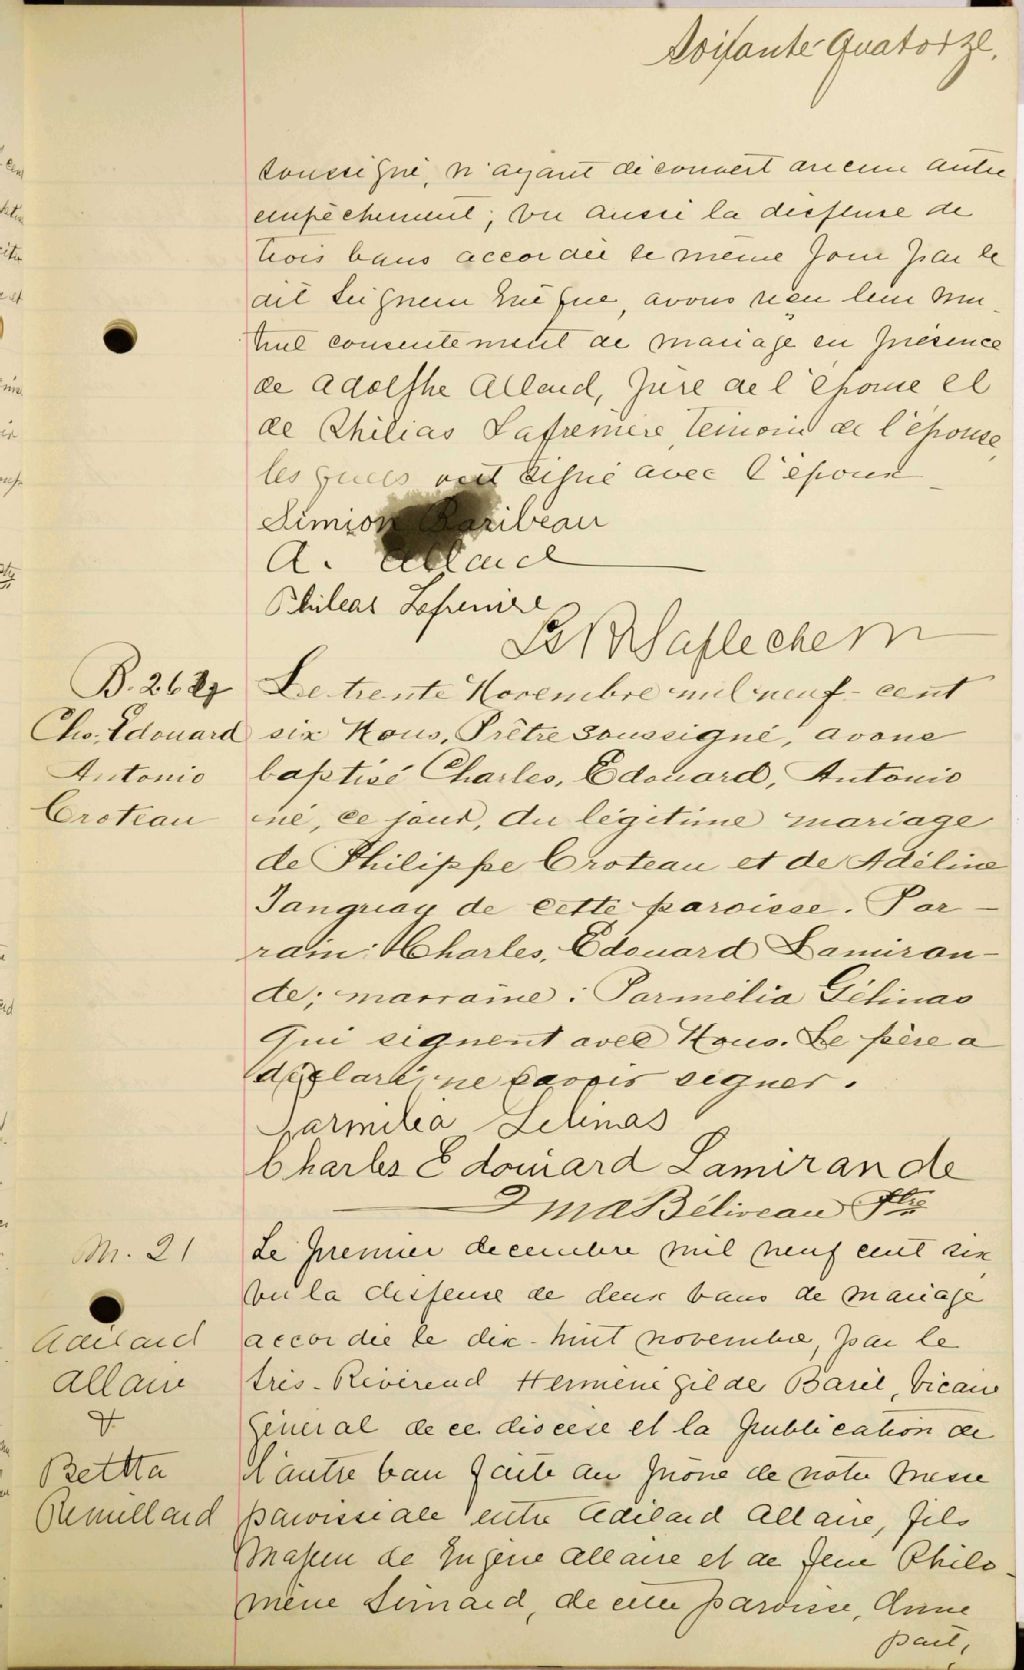 Soixante-Quatorze.
soussigné, n'ayant découvert aucun autre
empêchement; vu aussi la dispense de
trois bans accordée le même jour par le
dit Seigneur Evêque, avons reçu leur mu
tuel consentement de mariage en présence
de Adolphe Allard, père de l'épouse et
de Philias Lafrenière, témoin de l'épouse,
lesquels ont signé avec l'époux
Simion Baribeau
A. Allard
Phileas Lafreniere
Ls R Laflèche
B. 262
Chs. Edouard
Antonio
Croteau
Le trente Novembre mil neuf-cent
six Nous, Prêtre soussigné, avons
baptisé Charles, Edouard, Antonio
né, ce jour, du légitime mariage
de Philippe Croteau et de Adéline
Tanguay de cette paroisse. Par-
rain: Charles, Edouard Lamiran-
de; marraine: Parmélia Gélinas
Qui signent avec Nous. Le père a
déclaré ne savoir signer.
Parmilia Gelinas
Charles Edouard Lamirande
Béliveau Ptre
M. 21
Adélard
Allaire
&
Bertha
Remillard
Le premier decembre mil neuf cent six
vu la dispense de deux bans de mariage
accordée le dix-huit novembre, par le
très-Révérend Herménégilde Baril, Vicaire
Général de ce diocèse et la publication de
l'autre ban faite au prône de notre messe
paroissiale entre Adélard Allaire, fils
majeur de Eugène Allaire et de feue Philo-
mène Simard, de cette paroisse, d'une
part,